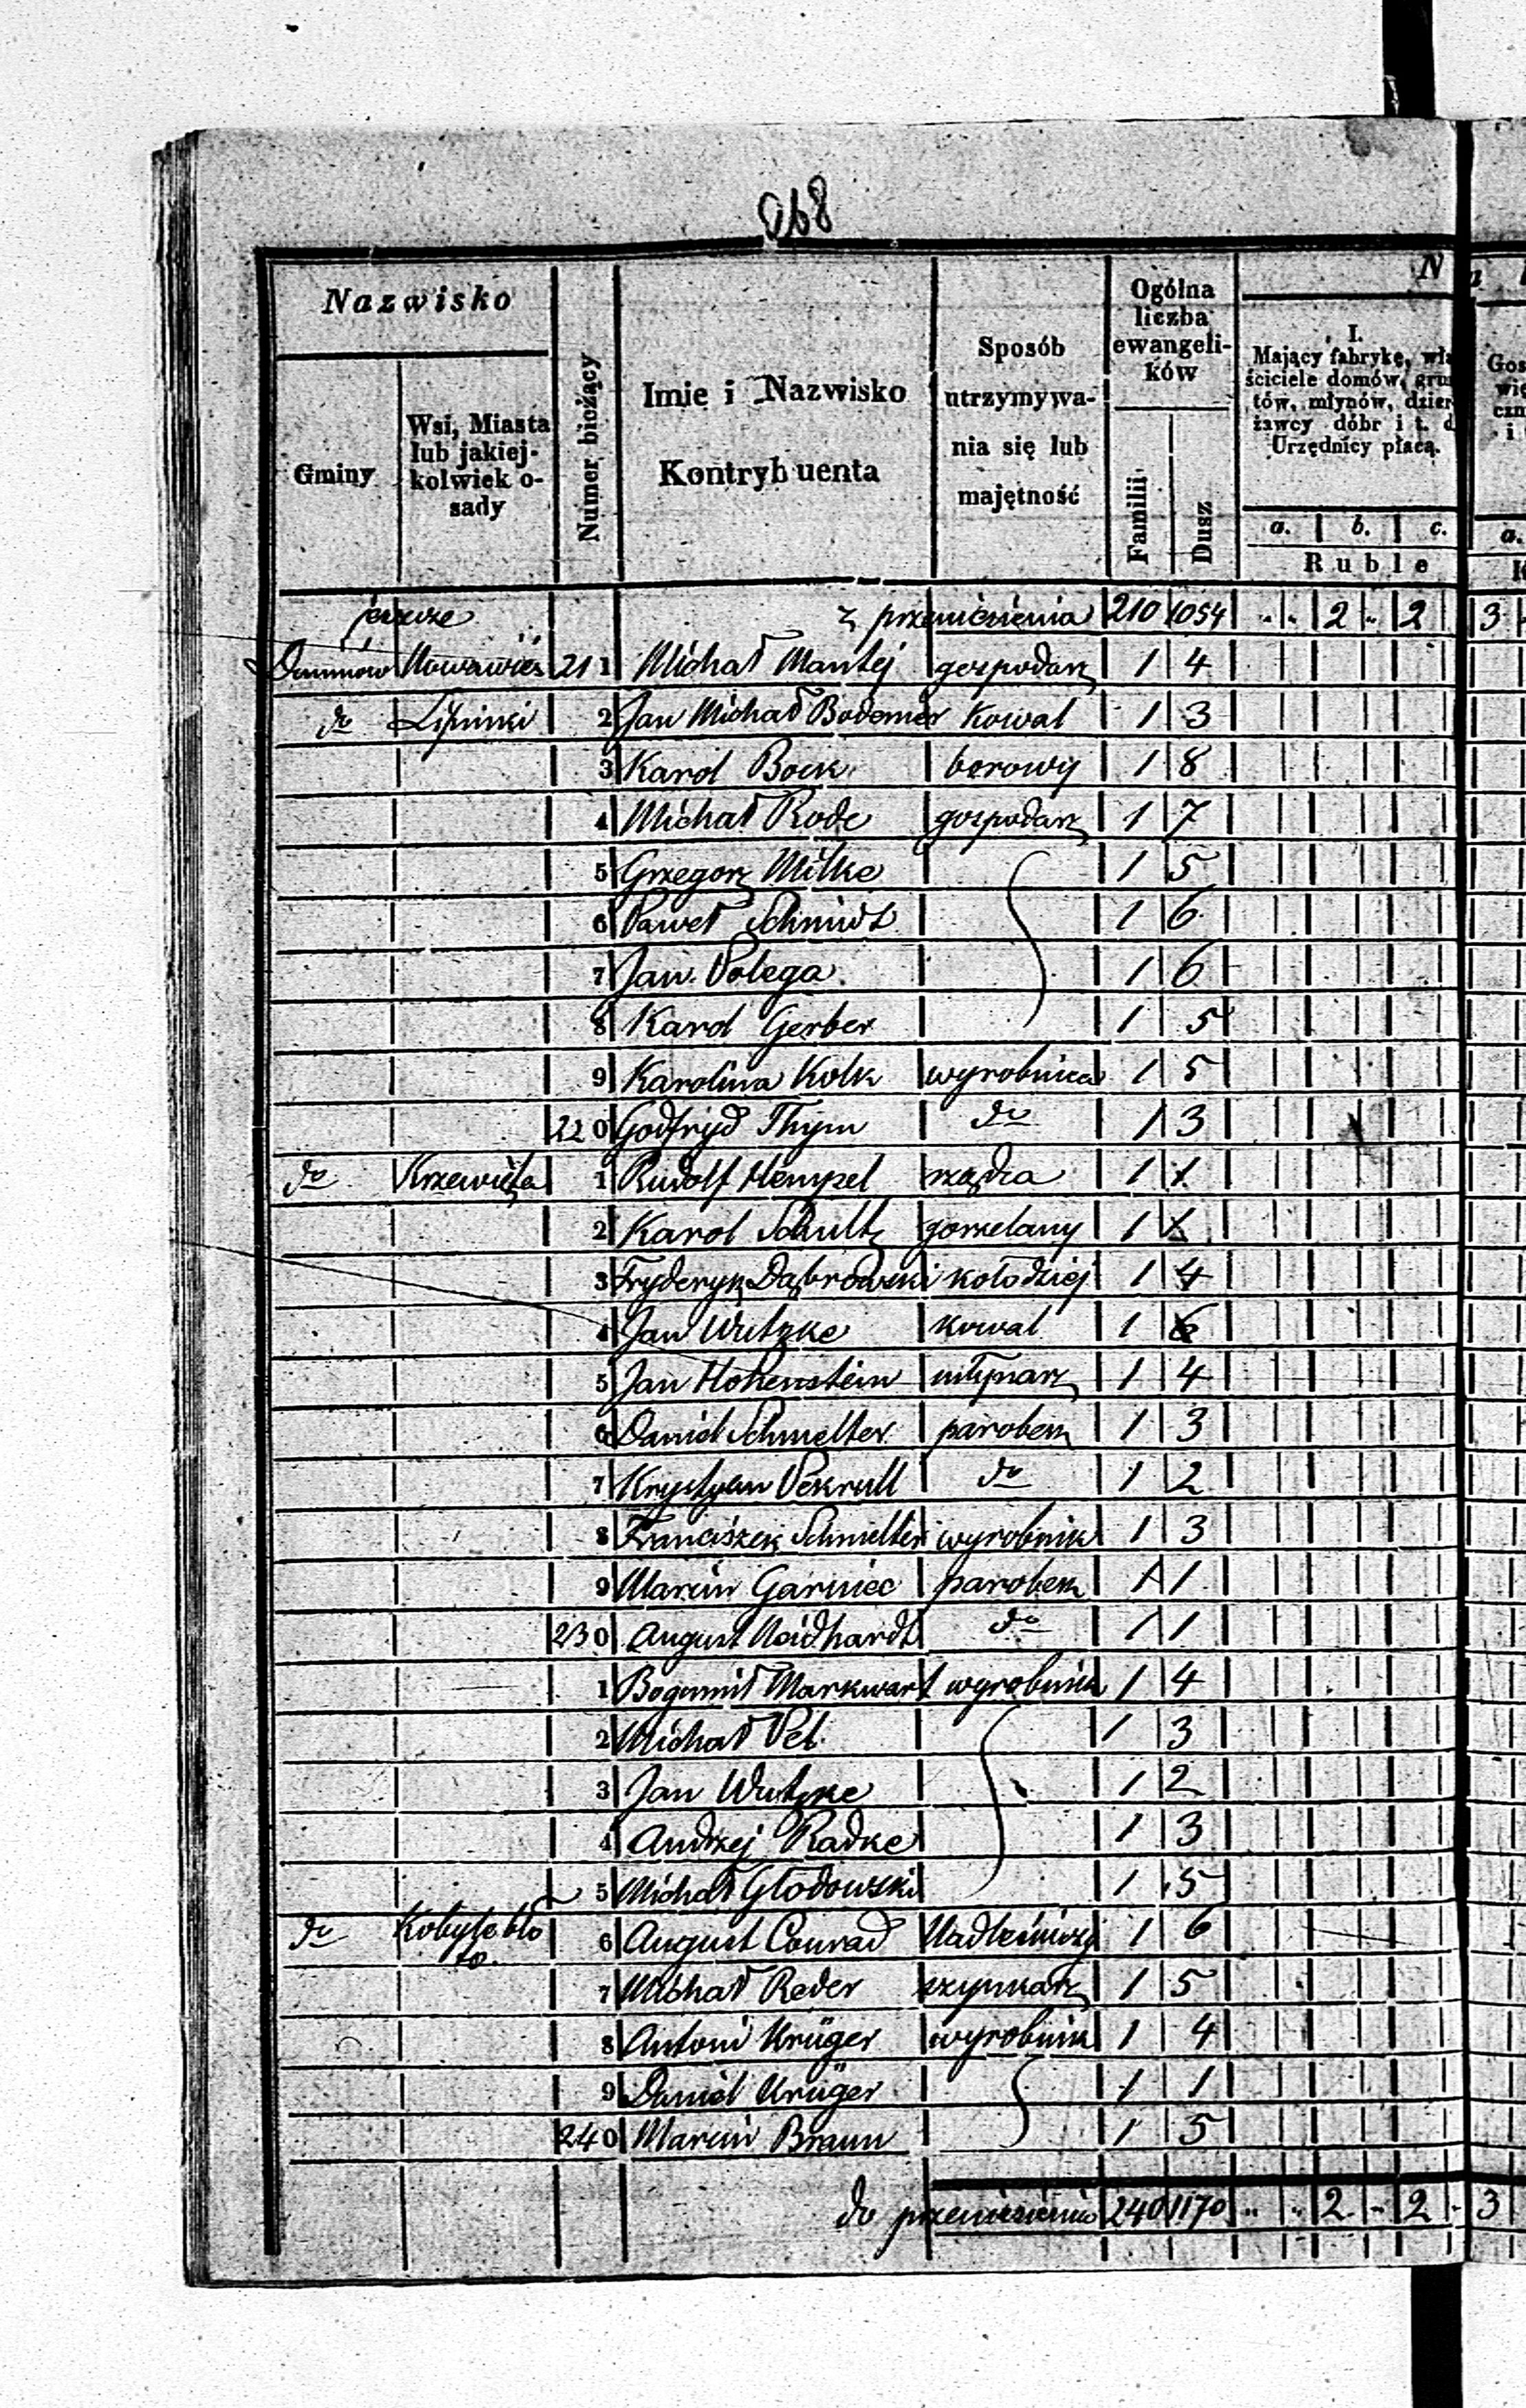 968
Nazwisko
Gminy
Wsi, Miasta lub jakiej-kolwiek o-sady
Numer bieżący
Imie i Nazwisko Kontrybuenta
Sposób utrzymywa-nia się lub majętność
Ogólna liczba ewangeli-ków
Familii
Dusz
N a
I. Mający fabrykę, wła ściciele domów, grun tów, młynów, dzier żawcy dóbr i t. d. Urzędnicy płacą.
a. b. c.
Ruble
jeszcze z przeniesienia 210 1054 „ „ 2 „ 2 3
Dumnów Nowawieś 211 Michał Mantej gospodarz 1 4
do Lipinki 2 Jan Michał Bodemer Kowal 1 3
3 Karol Bock borowy 1 8
4 Michał Rode gospodarz 1 7
5 Grzegorz Milke 1 5
6 Paweł Schmidt 1 6
7 Jan Polega 1 6
8 Karol Gerber 1 5
9 Karolina Kolk wyrobnica 1 5
220 Godfryd Thym do 1 3
do Krzewięta 1 Rudolf Hempel rządca 1 1
2 Karol Schultz gorzelany 1
3 Fryderyk Dąbrowski kołodziej 1 4
4 Jan Wutzke kowal 1 6
5 Jan Hohenstein młynarz 1 4
6 Daniel Schmelter parobek 1 3
7 Krystyan Pekrull do 1 2
8 Franciszek Schmelter wyrobnik 1 3
9 Marcin Garniec parobek 1 1
230 August Naidhardt do 1 1
1 Bogumił Markwart wyrobnik 1 4
2 Michał Pel 1 3
3 Jan Wutzke 1 2
4 Andrzej Radke 1 3
5 Michał Głodowski 1 5
do Kobyłebłoto. 6 August Conrad Nadleśniczy 1 6
7 Michał Reder szynkarz 1 5
8 Antoni Krüger wyrobnik 1 4
9 Daniel Krüger 1 1
240 Marcin Braun 1 5
do przeniesienia 240 1170 „ „ 2 „ 2 „ 3